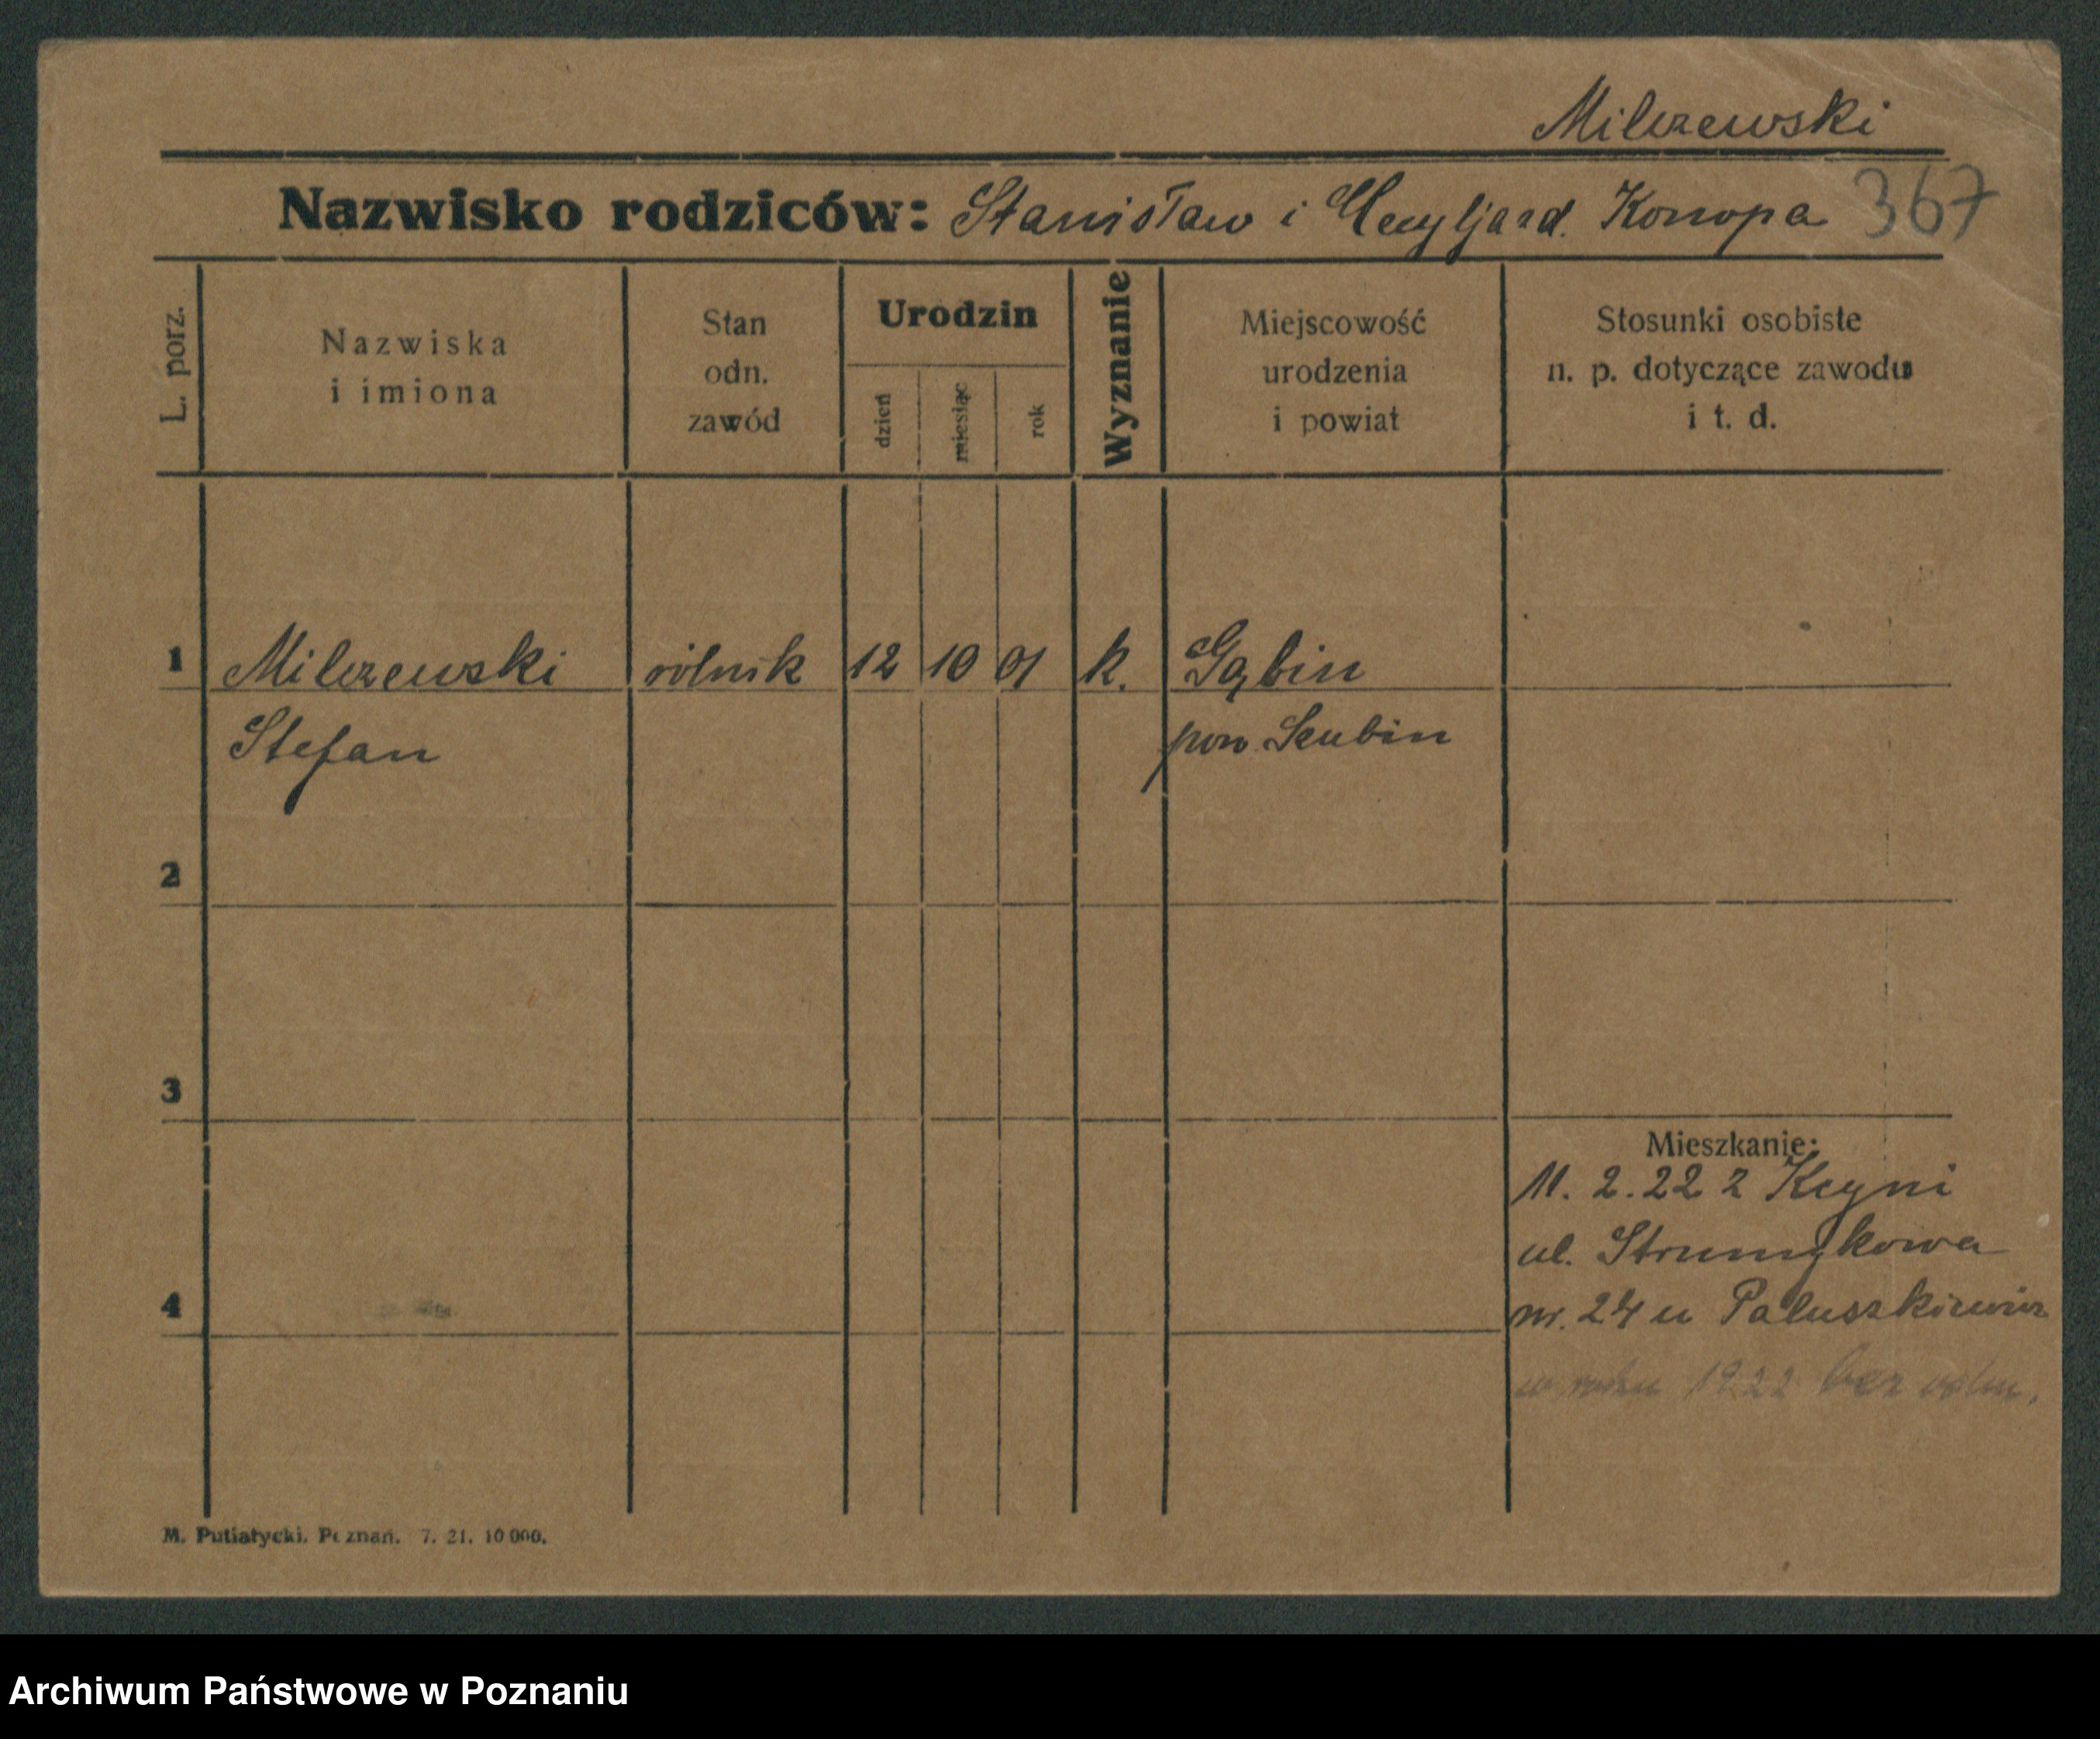 Milczewski
Nazwisko rodziców: Stanisław i Cecylja zd. Konopa 367
L. porz.
Nazwiska
i imiona
Stan
odn.
zawód
Urodzin
dzień
miesiąc
rok
Wyznanie
Miejscowość
urodzenia
i powiat
Stosunki osobiste
n. p. dotyczące zawodu
i t. d.
1 Milczewski rólnik 12 10 01 k. Gąbin
Stefan pow. Szubin
2
3
Mieszkanie:
11. 2. 22 z Kcyni
ul. Strumykowa
4
nr. 24 u Paluszkiewicz
w roku 1922 bez
M. Putiatycki. Poznań. 7. 21. 10 000.
Archiwum Państwowe w Poznaniu